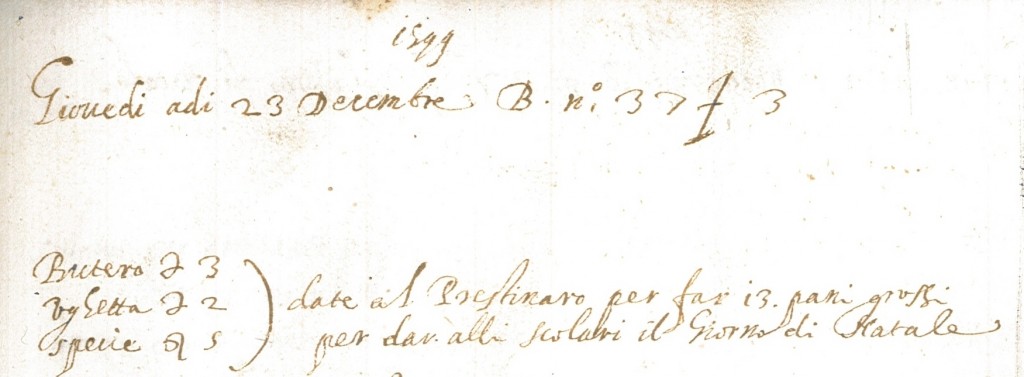 1599
Giouedi adi 23 Decembre B. n.° 37 3
Butero 3
vghetta 2
specie 5
date al Prestinaro per far 13. pani grossi
per dar alli scolari il Giorno di Natale